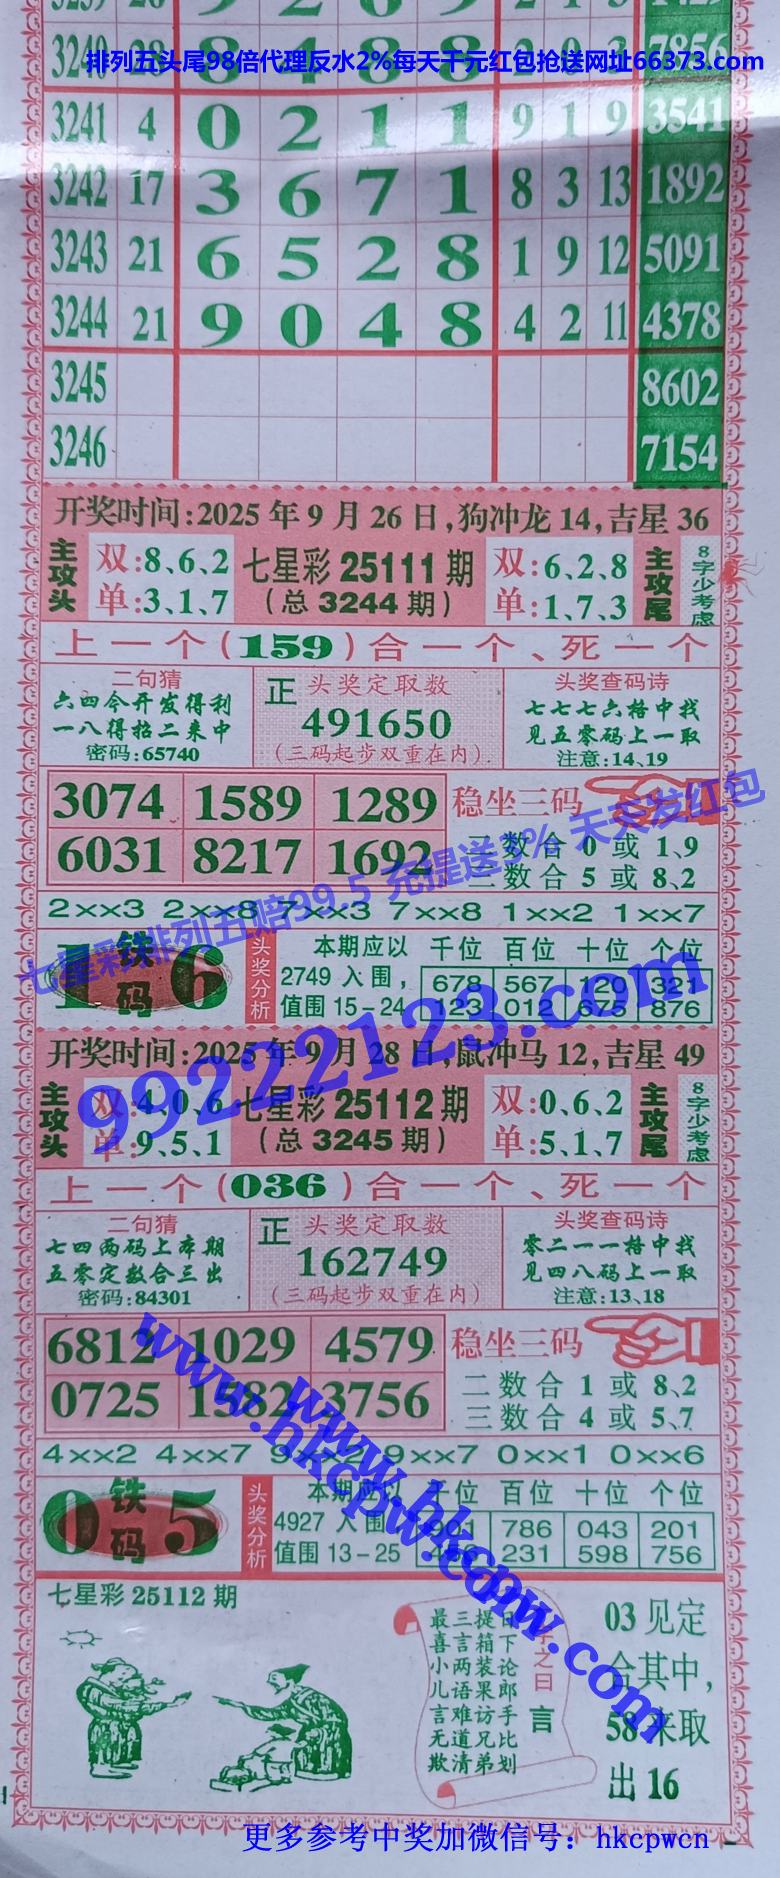 排列五头尾98倍代理反水2%每天千元红包抢送网址66373.com
3240 28 8 4 8 8 2 0 3 7856
3241 4 0 2 1 1 9 1 9 3541
3242 17 3 6 7 1 8 3 13 1892
3243 21 6 5 2 8 1 9 12 5091
3244 21 9 0 4 8 4 2 11 4378
3245 8602
3246 7154
开奖时间:2025年9月26日,狗冲龙14,吉星36
主攻头 双:8、6、2 单:3、1、7
七星彩25111期
(总3244期)
双:6、2、8 单:1、7、3 主攻尾
8字少考虑
上一个(159)合一个、死一个
二句猜
六四今开发得利
一八得招二来中
密码:65740
正 头奖定取数
491650
(三码起步双重在内)
头奖查码诗
七七七六格中找
见五零码上一取
注意:14、19
3074 1589 1289
6031 8217 1692
稳坐三码
二数合 0 或 1、9
三数合 5 或 8、2
2××3 2××8 7××3 7××8 1××2 1××7
1 铁码 6
头奖分析
本期应以
2749入围,
值围15-24
千位 百位 十位 个位
678 567 120 321
123 012 675 876
七星彩排列五赔99.5 充提送2% 天天发红包
99222123.com
开奖时间:2025年9月28日,鼠冲马12,吉星49
主攻头 双:4、0、6 单:9、5、1
七星彩25112期
(总3245期)
双:0、6、2 单:5、1、7 主攻尾
8字少考虑
上一个(036)合一个、死一个
二句猜
七四两码上本期
五零定数合三出
密码:84301
正 头奖定取数
162749
(三码起步双重在内)
头奖查码诗
零二一一格中找
见四八码上一取
注意:13、18
6812 1029 4579
0725 1582 3756
稳坐三码
二数合 1 或 8、2
三数合 4 或 5、7
4××2 4××7 9××2 9××7 0××1 0××6
0 铁码 5
头奖分析
本期应以
4927入围
值围13-25
千位 百位 十位 个位
901 786 043 201
456 231 598 756
www.hkcpw.com
www.hkcpw.com
七星彩25112期
字之曰
言
日下论郎手比划
提箱装果访兄弟
三言两语难道清
最喜小儿言无欺
03见定
合其中,
58来取
出16
更多参考中奖加微信号：hkcpwcn